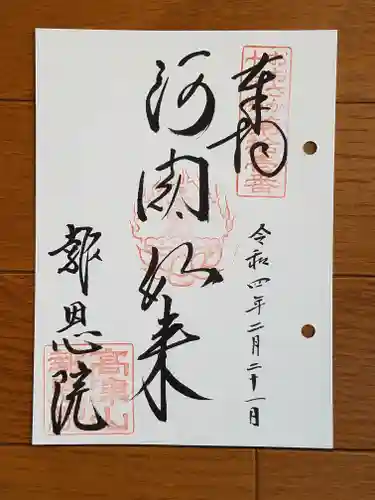 奉拝
令和四年二月二十一日
阿閦如来
報恩院
高東山